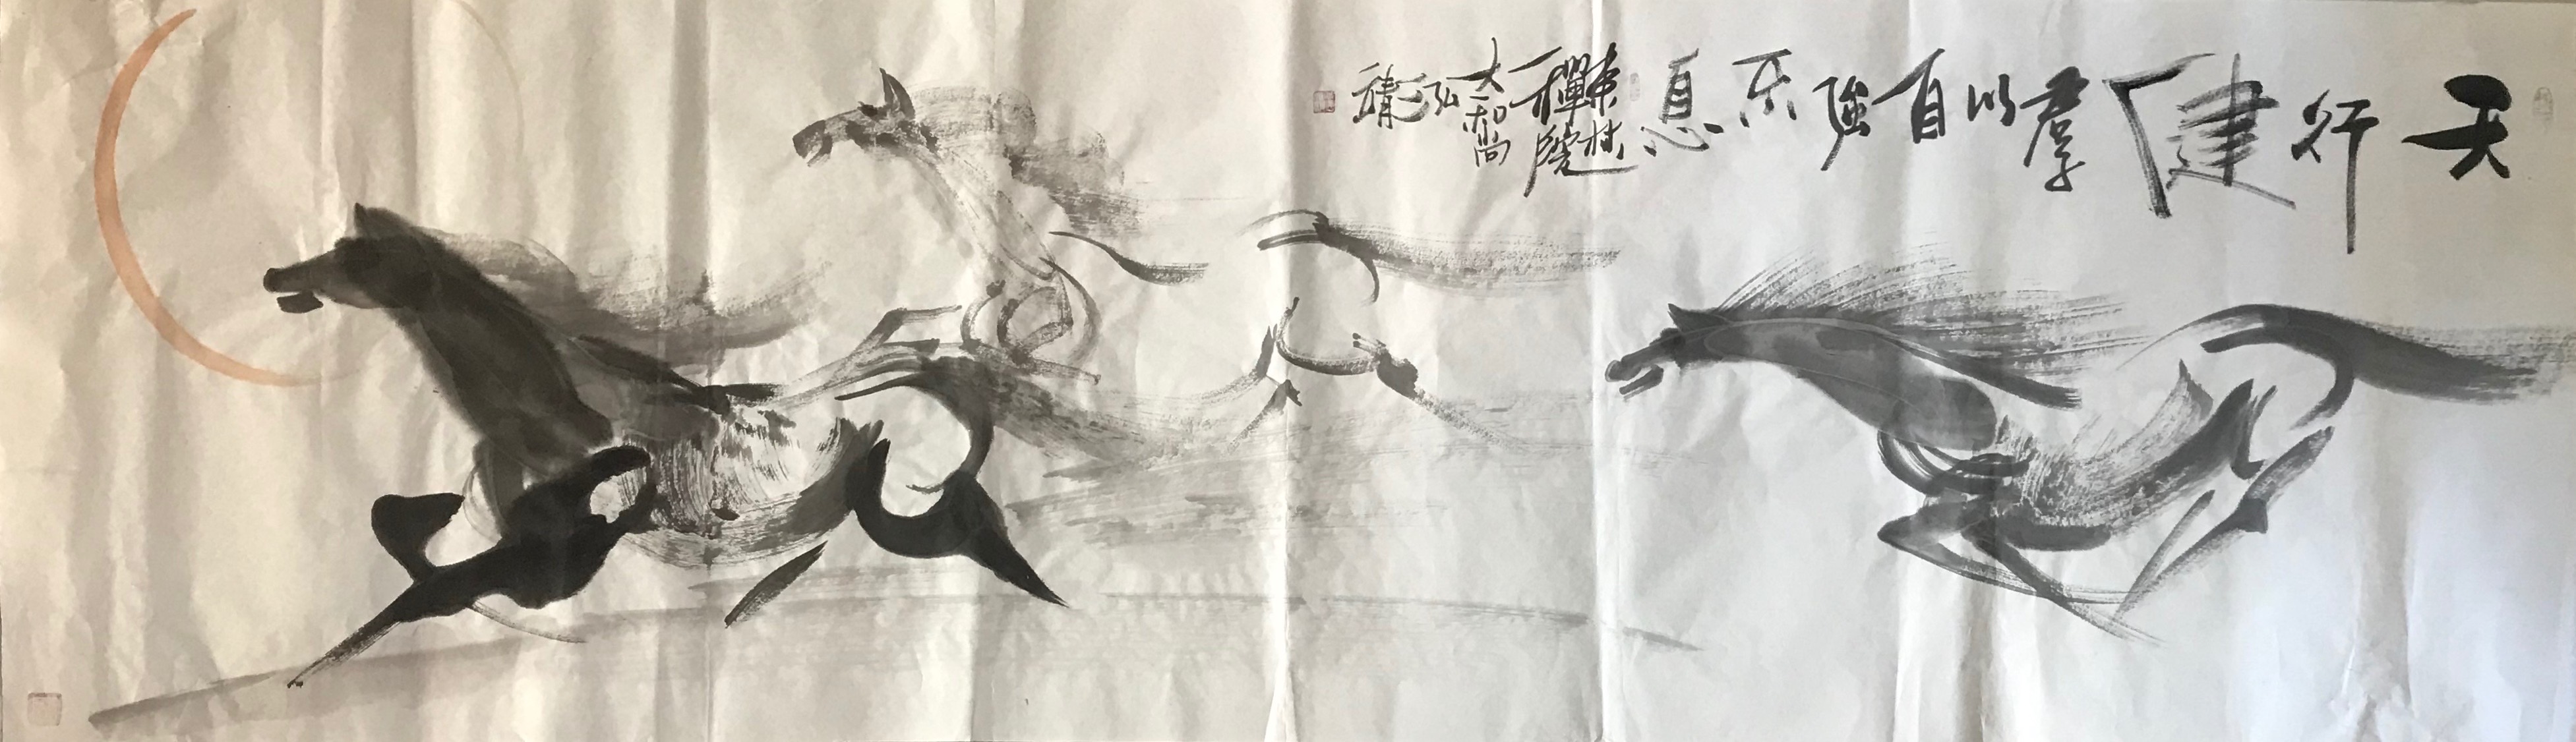 天行健君子以自強不息
東林
禪院
大和尚